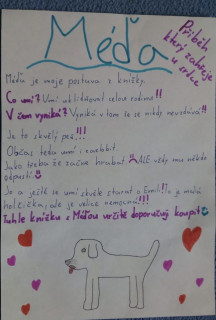 Méďa
Příběh
který zahřeje
u srdce
Méďa je moje postava z knížky.
Co umí? Umí uklidňovat celou rodinu!!
V čem vyniká? Vyniká v tom že se nikdy nevzdává!!
Je to skvělý pes!!!
Občas teda umí i zazlobit
Jako třeba že začne hrabat. ALE vždy mu někdo
odpustí
Jo a ještě se umí skvěle starat o Emili! Je malá
holčička, ale je velice nemocná!!!
Tuhle knížku s Méďou určitě doporučuji koupit